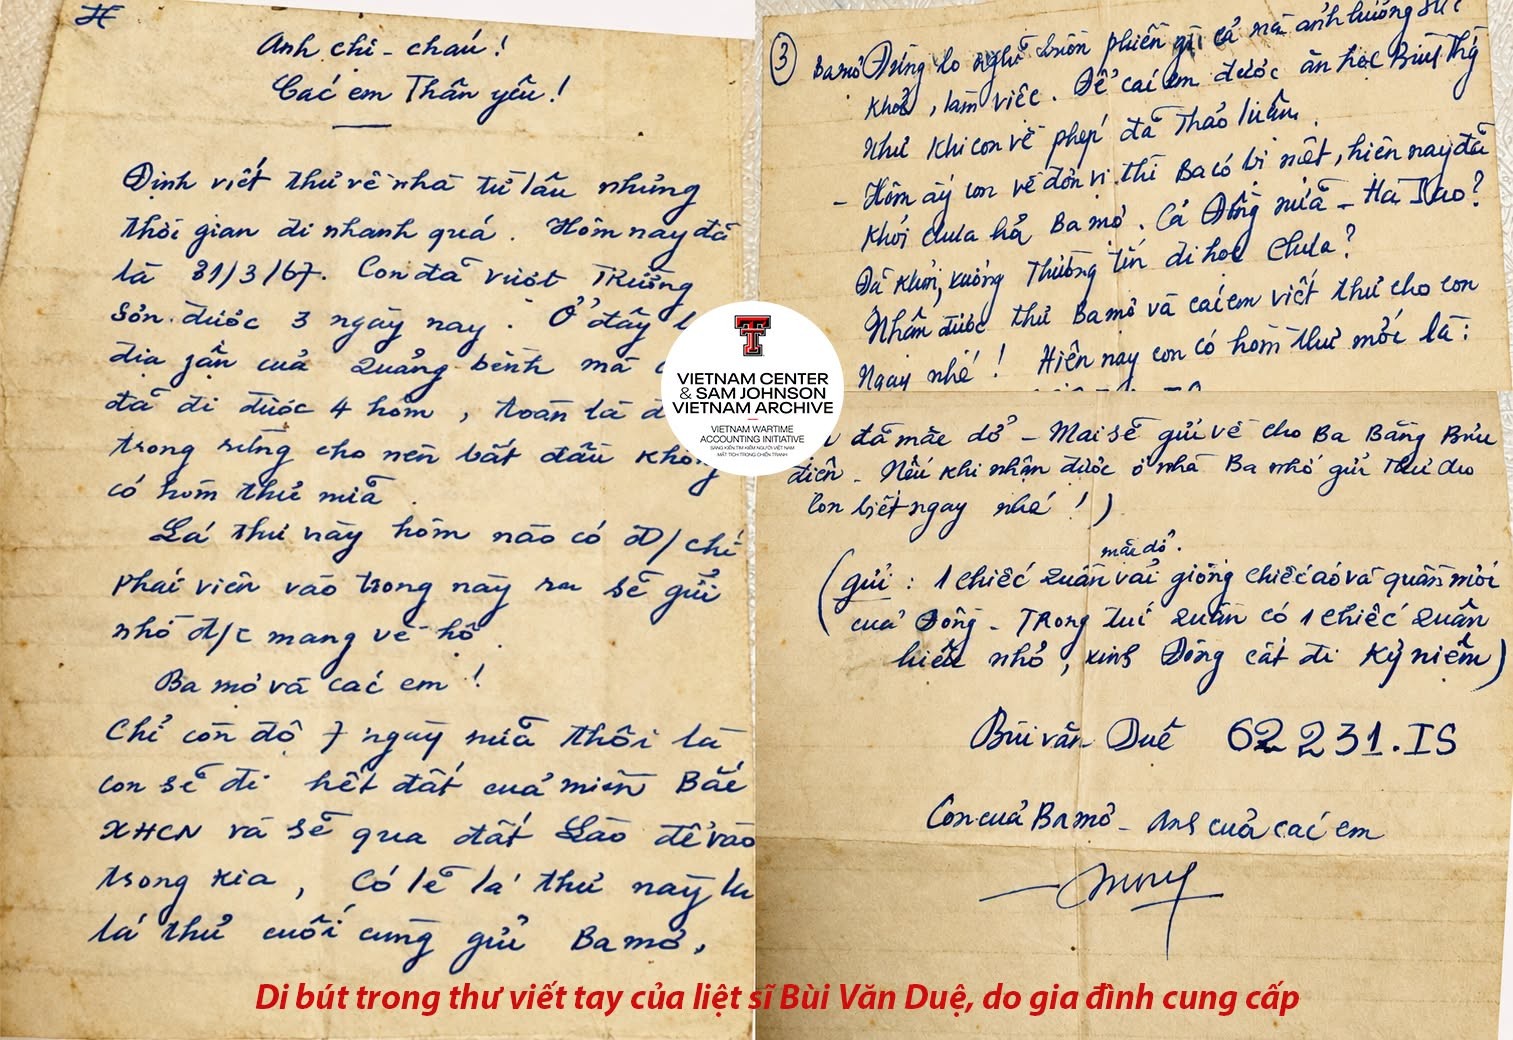 Anh chị - cháu!
Các em Thân yêu!
Định viết thư về nhà từ lâu nhưng
thời gian đi nhanh quá. Hôm nay đã
là 31/3/67. Con đã vượt Trường
Sơn được 3 ngày nay. Ở đây
địa phận của Quảng bình mà
đã đi được 4 hôm, toàn là
trong rừng cho nên bắt đầu không
có hòm thư nữa.
Lá thư này hôm nào có đ/chí
phái viên vào trong này ra sẽ gửi
nhờ đ/c mang về hộ.
Ba mợ và các em!
Chỉ còn độ 7 ngày nữa thôi là
con sẽ đi hết đất của miền Bắc
XHCN và sẽ qua đất Lào để vào
trong kia, Có lẽ lá thư này là
lá thư cuối cùng gửi Ba mợ,
3 Ba mợ Đừng lo nghĩ buồn phiền gì cả mà ảnh hưởng sức
khoẻ, làm việc. Để các em được ăn học
Như khi con về phép đã thảo luận.
- Hôm ấy con về đơn vị thì Ba có bị mệt, hiện nay đã
khỏi chưa hả Ba mợ. Cả Đông nữa - Ra Sao?
Đã khỏi, xuống Thường tín đi học chưa?
Nhận được thư Ba mợ và các em viết thư cho con
Ngay nhé! Hiện nay con có hòm thư mới là:
đã mặc dở - Mai sẽ gửi về cho Ba Bằng Bưu
điện. Nếu khi nhận được ở nhà Ba nhớ gửi thư cho
Con biết ngay nhé!)
mặc dở.
(gửi: 1 chiếc quần vải giống chiếc áo và quần mới
của Đông - Trong túi quần có 1 chiếc quần
hiếu nhỏ, xinh Đông cất đi kỷ niệm)
Bùi văn Duê 62231.IS
Con của Ba mợ - anh của các em
VIETNAM CENTER
& SAM JOHNSON
VIETNAM ARCHIVE
VIETNAM WARTIME
ACCOUNTING INITIATIVE
SÁNG KIẾN TÌM KIẾM NGƯỜI VIỆT NAM
MẤT TÍCH TRONG CHIẾN TRANH
Di bút trong thư viết tay của liệt sĩ Bùi Văn Duệ, do gia đình cung cấp